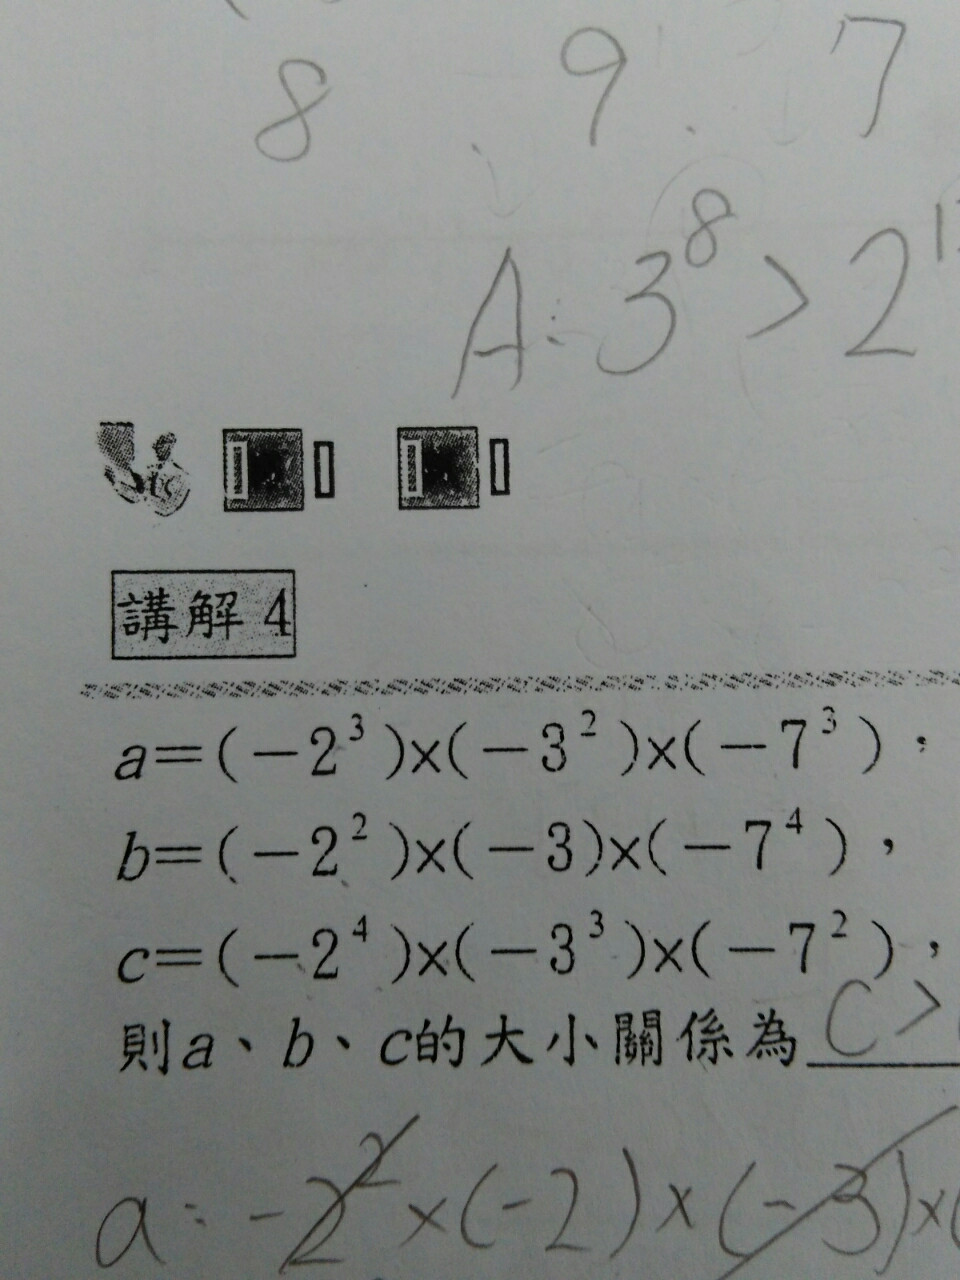 8 . 9 . 7
A: 3⁸ > 2
講解 4
a=(−2³)×(−3²)×(−7³),
b=(−2²)×(−3)×(−7⁴),
c=(−2⁴)×(−3³)×(−7²),
則a、b、c的大小關係為 C >
a: -2² × (-2) × (-3) × (